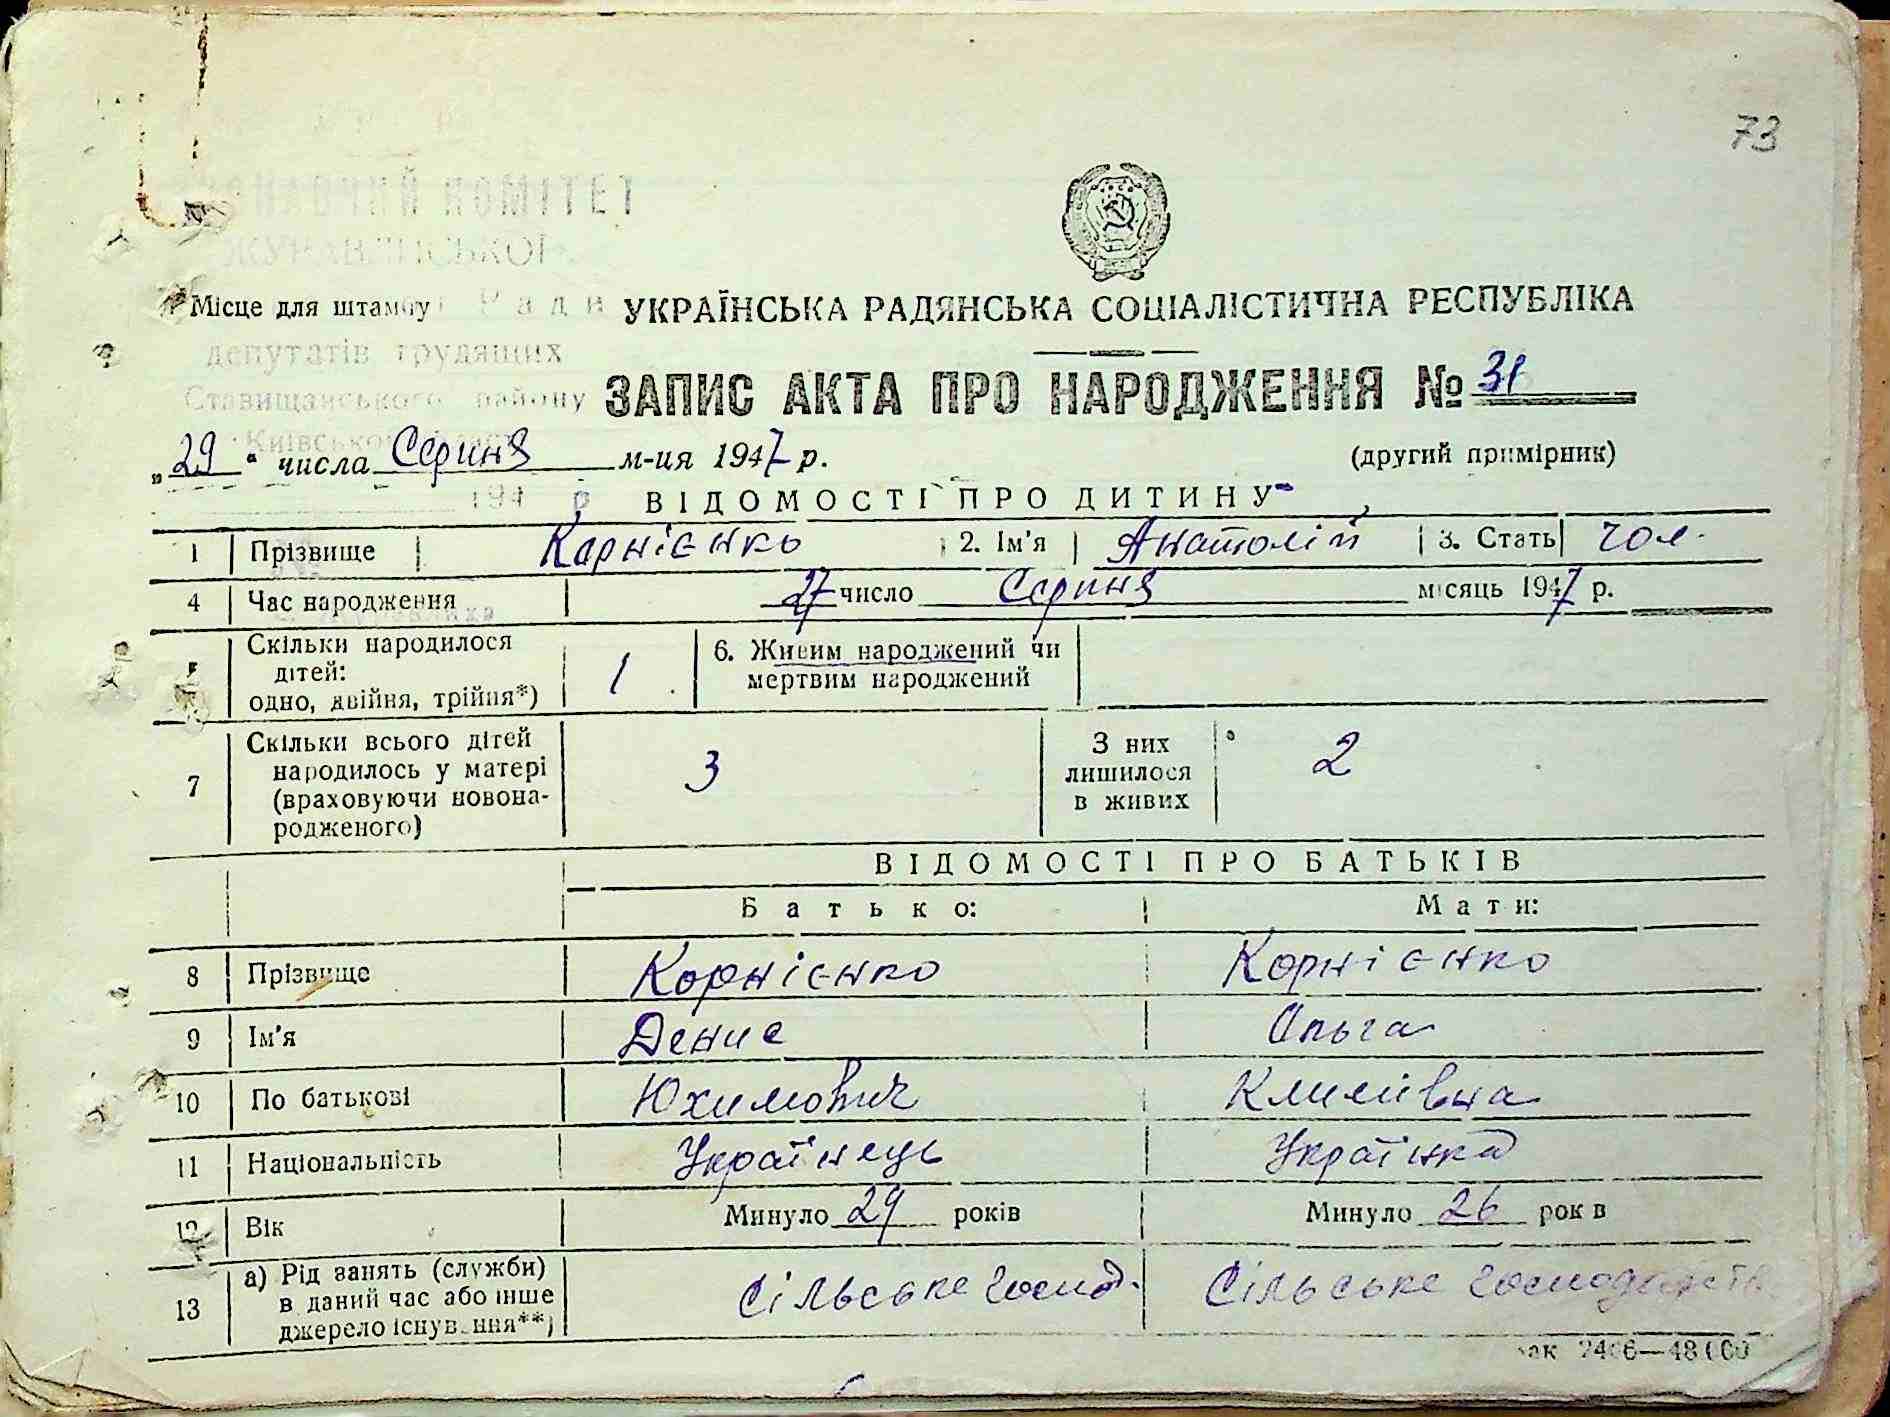 73
ВИКОНАВЧИЙ КОМІТЕТ
ЖУРАВЛИСЬКОЇ
Місце для штампу Ради УКРАЇНСЬКА РАДЯНСЬКА СОЦІАЛІСТИЧНА РЕСПУБЛІКА
депутатів трудящих
ЗАПИС АКТА ПРО НАРОДЖЕННЯ № 31
Ставищанського району
Київської
„29“ числа Серпня м-ця 1947 р. (другий примірник)
194 р
ВІДОМОСТІ ПРО ДИТИНУ
1 Прізвище Корнієнко 2. Ім'я Анатолій 3. Стать чол.
4 Час народження 27 число Серпня місяць 1947 р.
5 Скільки народилося дітей: одно, двійня, трійня*) 1 6. Живим народжений чи мертвим народжений
7 Скільки всього дітей народилось у матері (враховуючи новонародженого) 3 З них лишилося в живих 2
ВІДОМОСТІ ПРО БАТЬКІВ
Батько: Мати:
8 Прізвище Корнієнко Корнієнко
9 Ім'я Денис Ольга
10 По батькові Юхимович Климівна
11 Національність Українець Українка
12 Вік Минуло 29 років Минуло 26 рок в
13 а) Рід занять (служби) в даний час або інше джерело існування**) Сільське господ. Сільське господарств
зак 2406—48.000